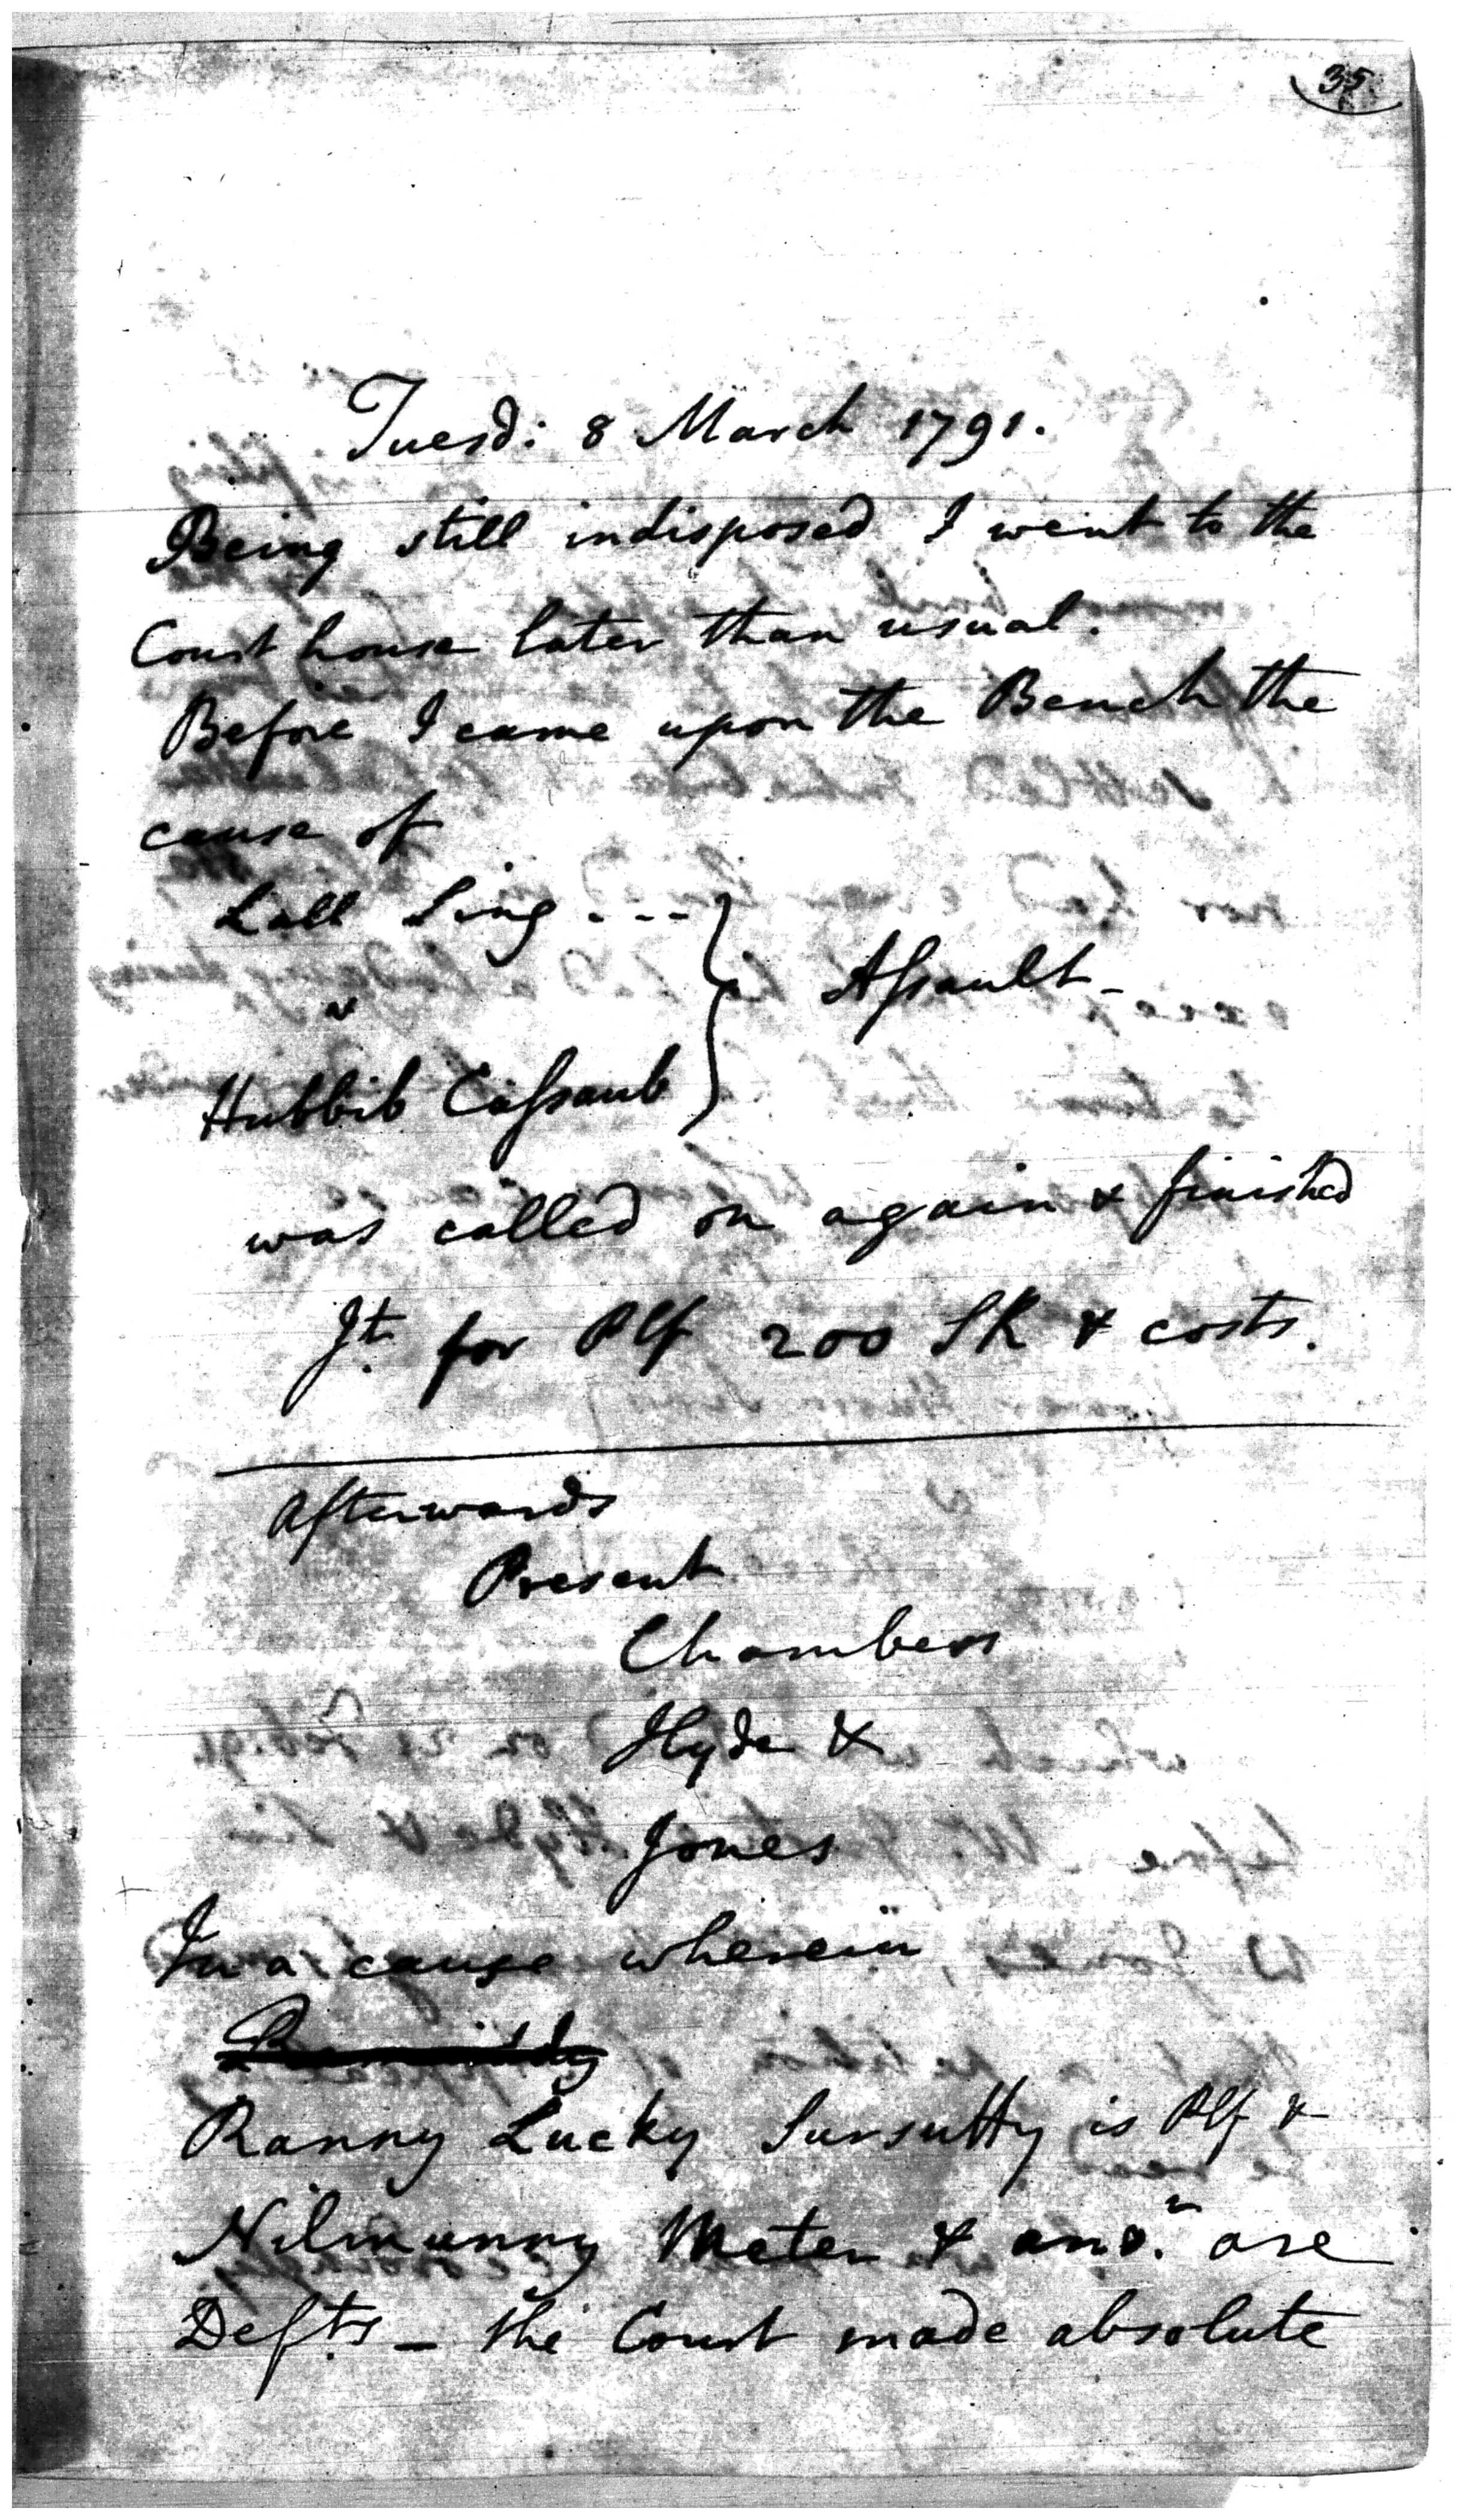 35.
Tuesd: 8 March 1791.
Being still indisposed I went to the
Court house later than usual.
Before I came upon the Bench the
cause of
Lall Sing ---
v
Hubbib Caſsaub
Aſsault -
was called on again & finished
Jt. for Plf 200 SR & costs.
Afterwards
Present
Chambers
Hyde &
Jones
In a cause wherein
Ranny Lucky Sursutty is Plf &
Nilmunny Meter & ano.r are
Defts - the Court made absolute